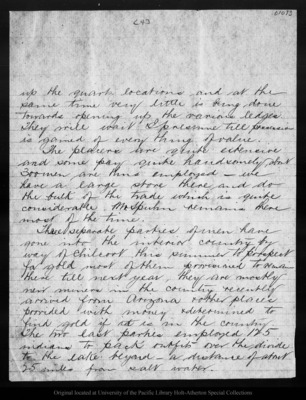 643
up the quartz locations and at the
same time very little is being done
towards opening up the various ledges
They will wait I presume till possession
is gained of every thing of value.
The placers are quite extensive
and some pay quite handsomely about
300 men are thus employed – we
have a large store there and do
the bulk of the trade which is quite
considerable McSpuhn remains there
most of the time.
Three separate parties of men have
gone into the interior country by
way of Chilcoot this summer to prospect
for gold most of them provisioned to remain
there till next year they are mostly
new miners in the country recently
arrived from Arizona & other places
provided with money & determined to
find gold if it is in the country
The two last parties employed 125
indians to pack outfits over the divide
to the lake beyond – a distance of about
25 miles from salt water.
Original located at University of the Pacific Library Holt-Atherton Special Collections